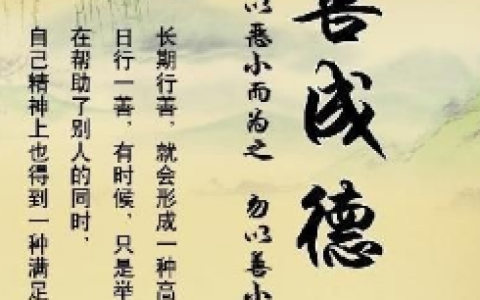 善成德
以恶小而为之 勿以善小
长期行善，就会形成一种高
日行一善，有时候，只是举
在帮助了别人的同时，
自己精神上也得到一种满足